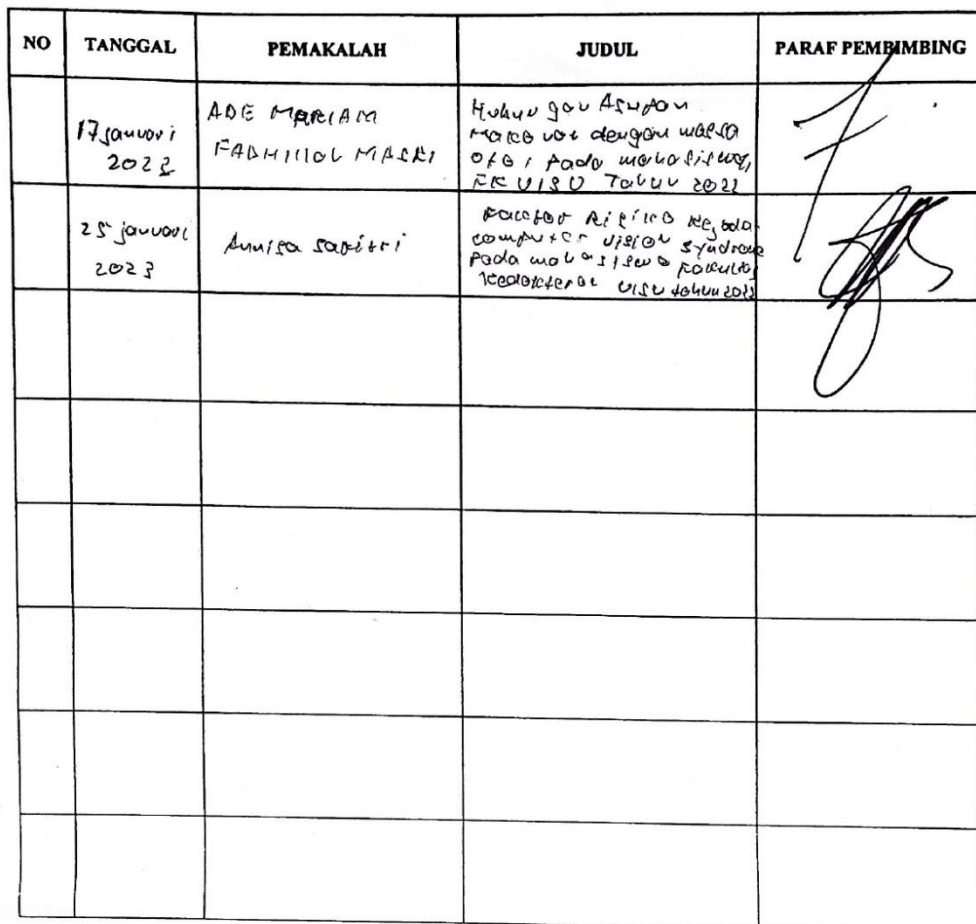 NO TANGGAL PEMAKALAH JUDUL PARAF PEMBIMBING
17 januari
2023
ADE MARIAM
FADHILLOL MASRI
Hubungan Asupan
makanan dengan massa
otot pada mahasiswa,
FK UISU Tahun 2022
25 januari
2023
Annisa Safitri
Faktor Risiko Kejadian
computer vision syndrome
pada mahasiswa Fakultas
Kedokteran UISU tahun 2022